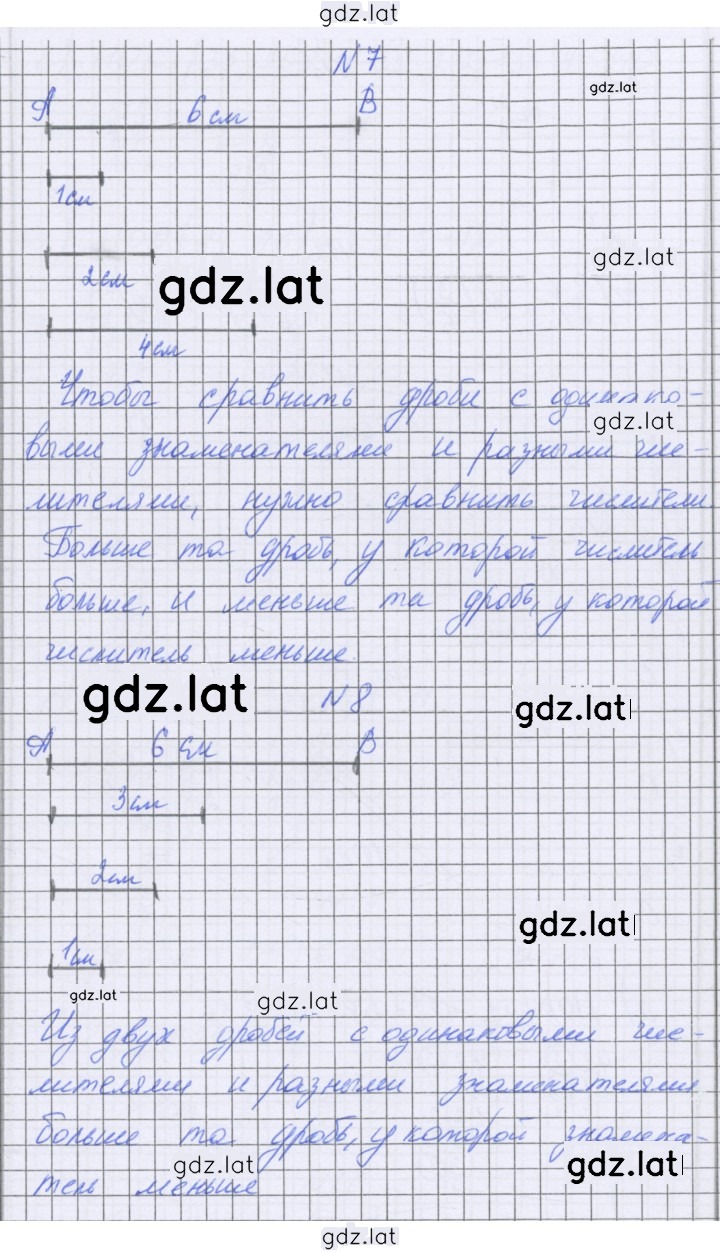 gdz.lat
N 7
gdz.lat
A 6 см B
1 см
gdz.lat
2 см
gdz.lat
4 см
Чтобы сравнить дроби с одинако-
gdz.lat
выми знаменателями и разными чис-
лителями, нужно сравнить числители.
Больше та дробь, у которой числитель
больше, и меньше та дробь, у которой
числитель меньше.
gdz.lat
N 8
gdz.lat
A 6 см B
3 см
2 см
gdz.lat
1 см
gdz.lat
gdz.lat
Из двух дробей с одинаковыми чис-
лителями и разными знаменателями
больше та дробь, у которой знамена-
gdz.lat
gdz.lat
тель меньше
gdz.lat